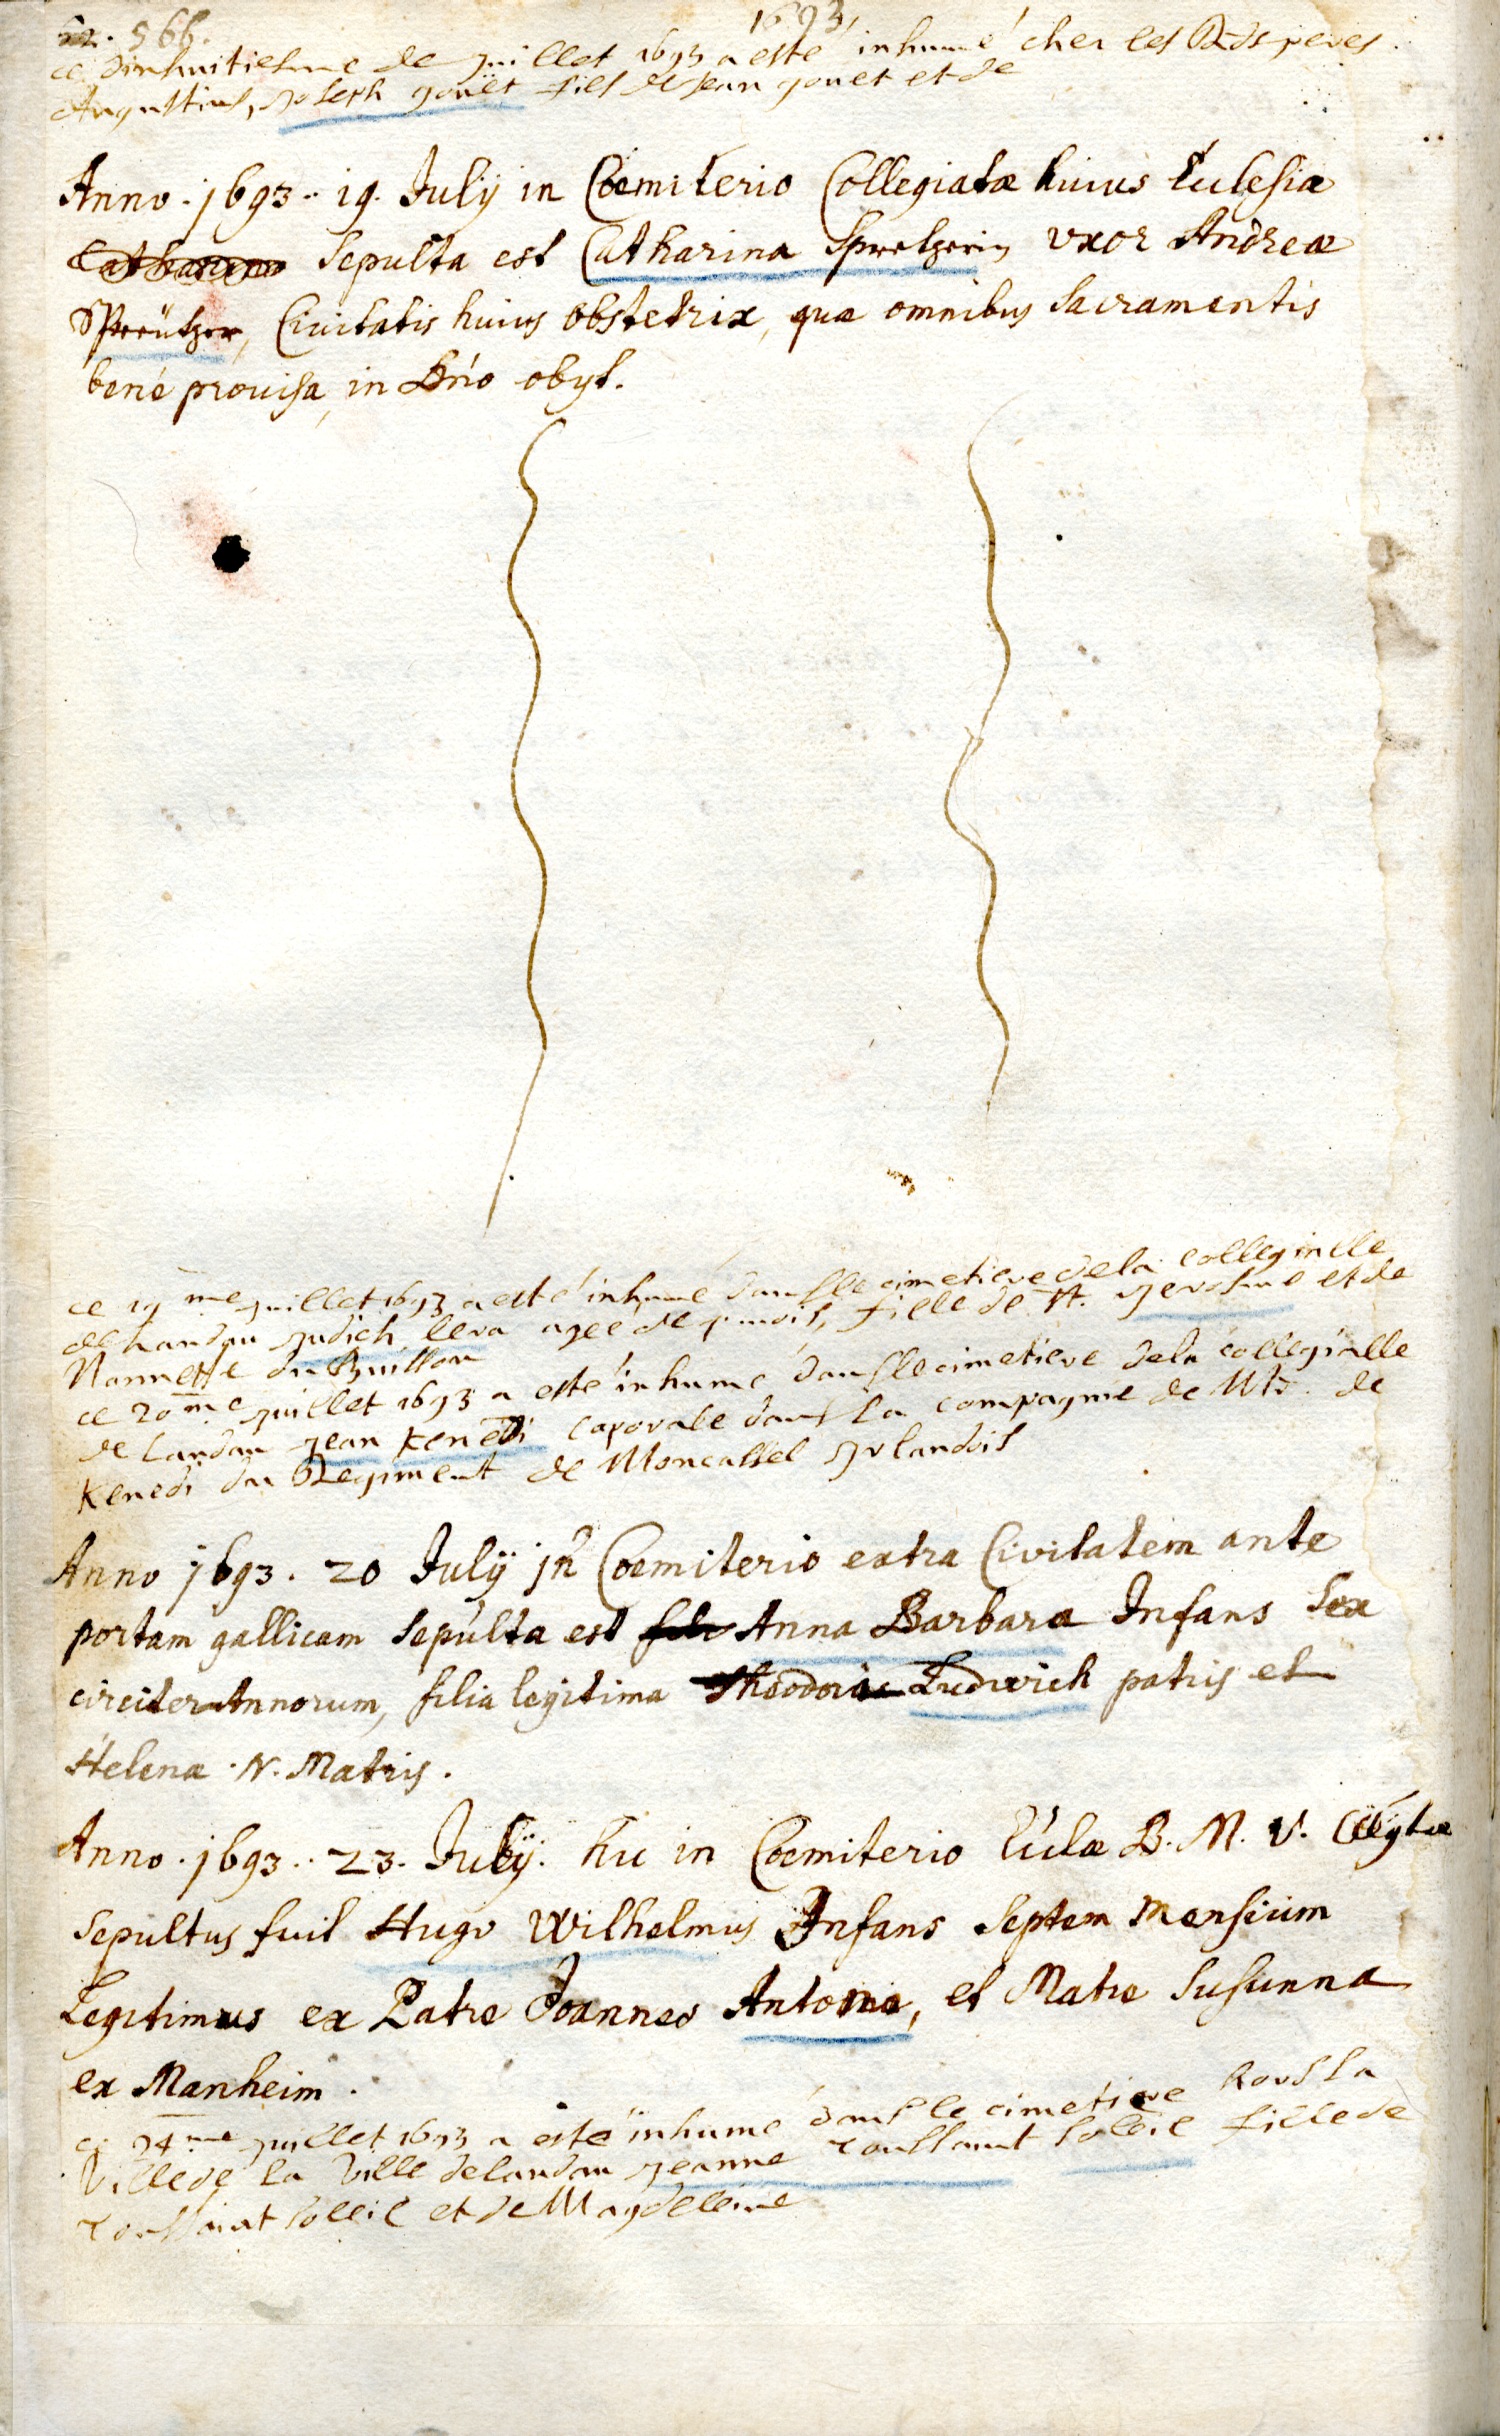 566.
1693,
ce dixhuitiesme de juillet 1693 a esté inhumé chez les Rds peres
Augustins, joseph jouët fils de jean jouet et de
Anno . 1693 .. 19. Julÿ in Coemiterio Collegiatæ huius Ecclesiæ
Catharina Sepulta est Catharina Spretzerin vxor Andreæ
Spreützer, Ciuitatis huius obstetrix, quæ omnibus Sacramentis
bené prouisa, in Dn̄o obyt.
ce 19 me juillet 1693 a esté inhumé dans le cimetiere de la collegialle
de Landau judich leva agée de mois, fille de et de
Nannette du Buisson
ce 20 me juillet 1693 a esté inhumé dans le cimetiere dela collegialle
de Landau jean Kenedi caporale dans la compagnie de Mr. de
Kenedi du Regiment de Moncassel jrlandois
Anno 1693 . 20 Julÿ jn Coemiterio extra Civitatem ante
portam gallicam Sepulta est Anna Barbara Infans Sex
circiter Annorum, filia legitima Theodoric Ludwich patris et
Helenæ . N. Matris .
Anno . 1693 .. 23. Julÿ . hic in Coemiterio Eccl̄æ B. M. V.
Sepultus fuit Hugo Wilhelmus Infans Septem Mensium
Legitimus ex Patre Joanneo Antonio, et Matre Susunna
ex Manheim .
ce 24 me juillet 1693 a esté inhumé dans le cimetiere hors la
Ville de la Ville de landau jeanne toussaint soleil fille de
toussaint soleil et de Magdelleine